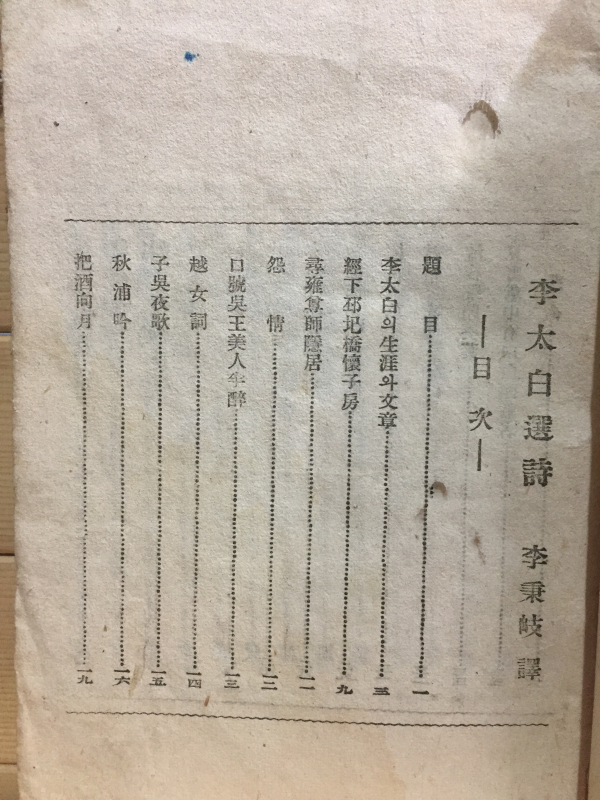 李太白選詩 李秉岐 譯
―目次―
題目……一
李太白의生涯와文章……三
經下邳圯橋懷子房……九
尋雍尊師隱居……一一
怨情……一二
口號吳王美人半醉……一三
越女詞……一四
子吳夜歌……一五
秋浦吟……一六
把酒向月……一九